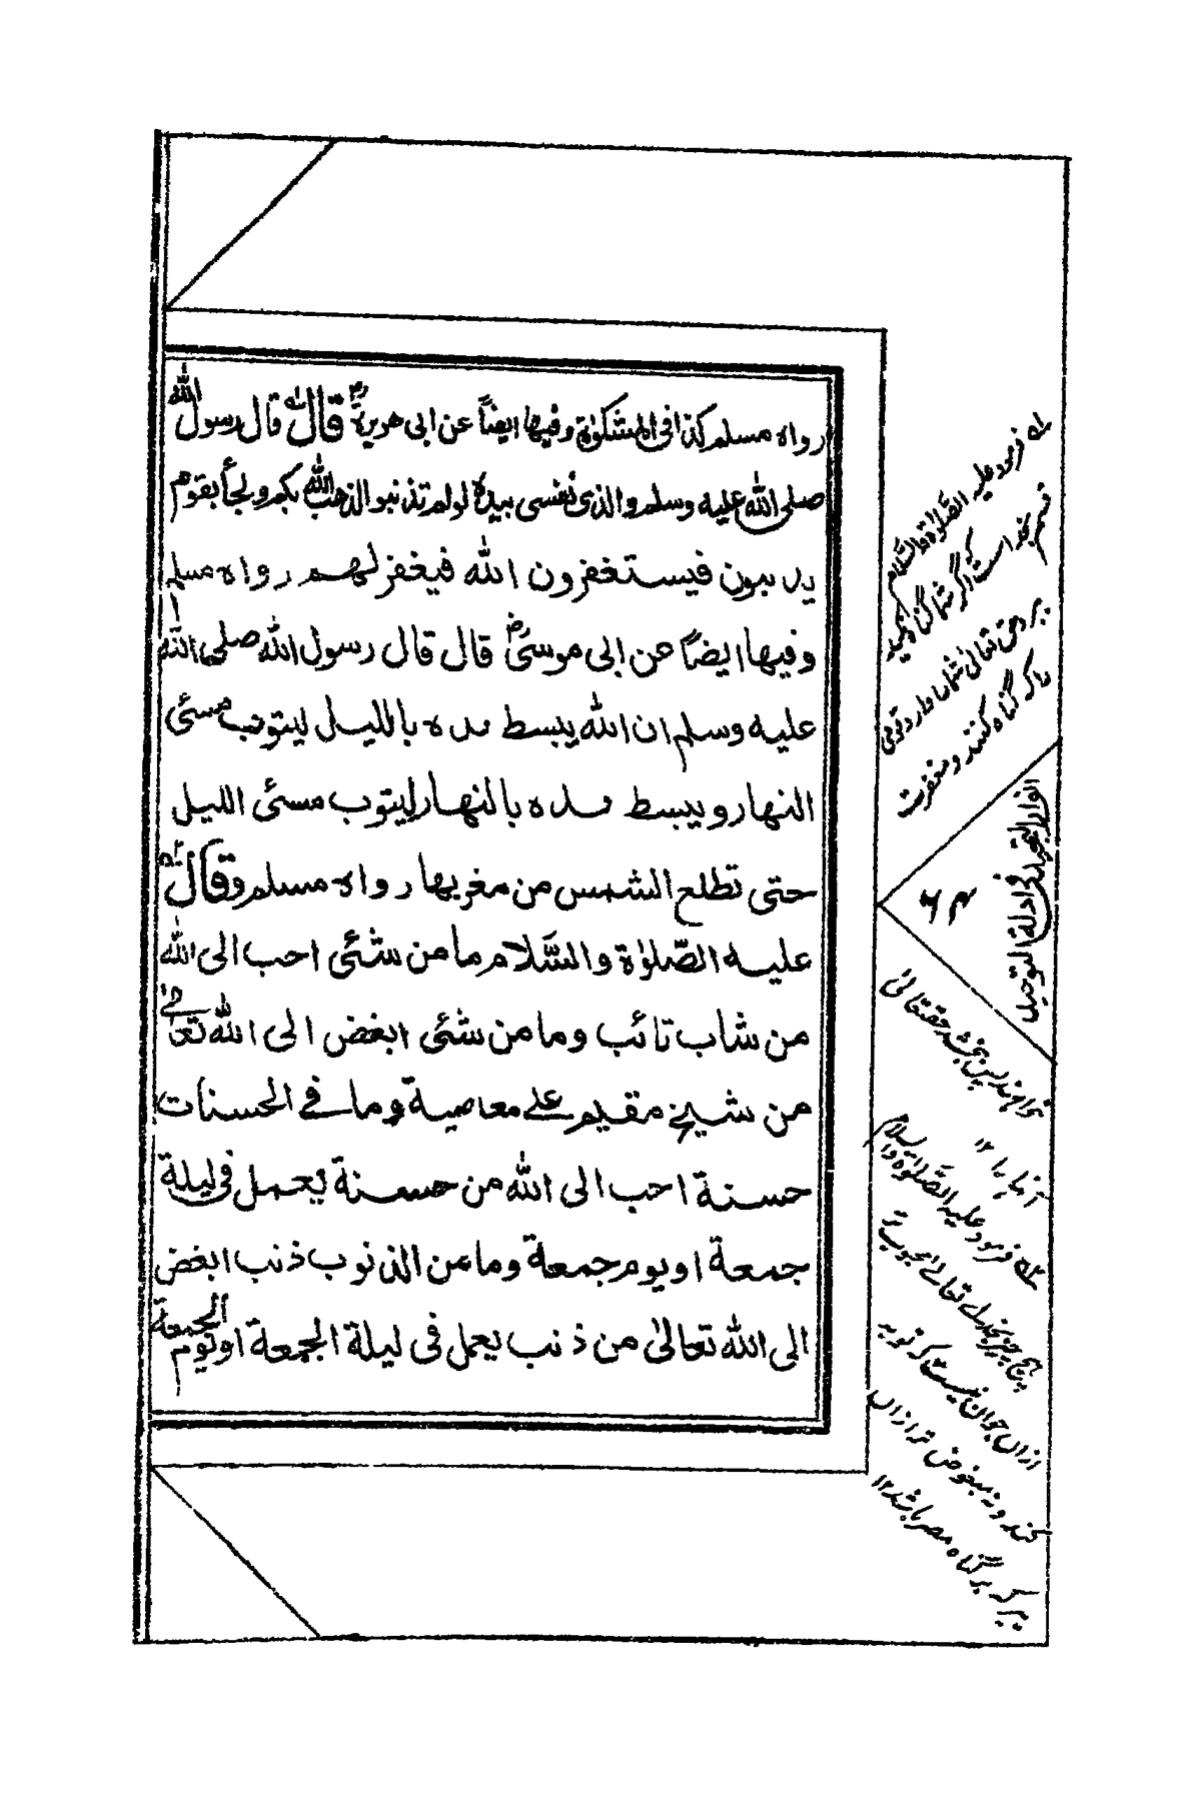 رواه مسلم كذا فى المشكوٰة وفيها ايضاً عن ابى هريرة قال قال رسول الله
صلى الله عليه وسلم والذى نفسى بيده لو لم تذنبوا لذهب الله بكم ولجأ بقوم
يذنبون فيستغفرون الله فيغفر لهم رواه مسلم
وفيها ايضاً عن ابى موسىٰ قال قال رسول الله صلى الله
عليه وسلم ان الله يبسط يده بالليل ليتوب مسئ
النهار ويبسط يده بالنهار ليتوب مسئ الليل
حتى تطلع الشمس من مغربها رواه مسلم وقال
عليه الصّلوٰة والسّلام ما من شئى احب الى الله
من شاب تائب وما من شئى ابغض الى الله تعالىٰ
من شيخ مقيم على معاصية وما فى الحسنات
حسنة احب الى الله من حسنة يعمل فى ليلة
جمعة او يوم جمعة وما من الذنوب ذنب ابغض
الى الله تعالىٰ من ذنب يعمل فى ليلة الجمعة او يوم الجمعة
له فرمود عليه الصّلوٰة والسّلام
قسم بخدا است كه اگر شما گناه نكنيد
ببرد حق تعالىٰ شما را و آرد قومى
را كه گناه كنند و مغفرت
انوار التمجيد فى ادلة التوحيد
۶۴
خواهند پس بخشد حقتعالىٰ
آنها را ۱۲
۲ه فرمود عليه الصّلوٰة والسلام
هيچ چيز نزد خداى تعالىٰ محبوب تر
ازان جوان نيست كه توبه
كند و نه مبغوض تر ازان
پير كه بر گناه مصر باشد ۱۲